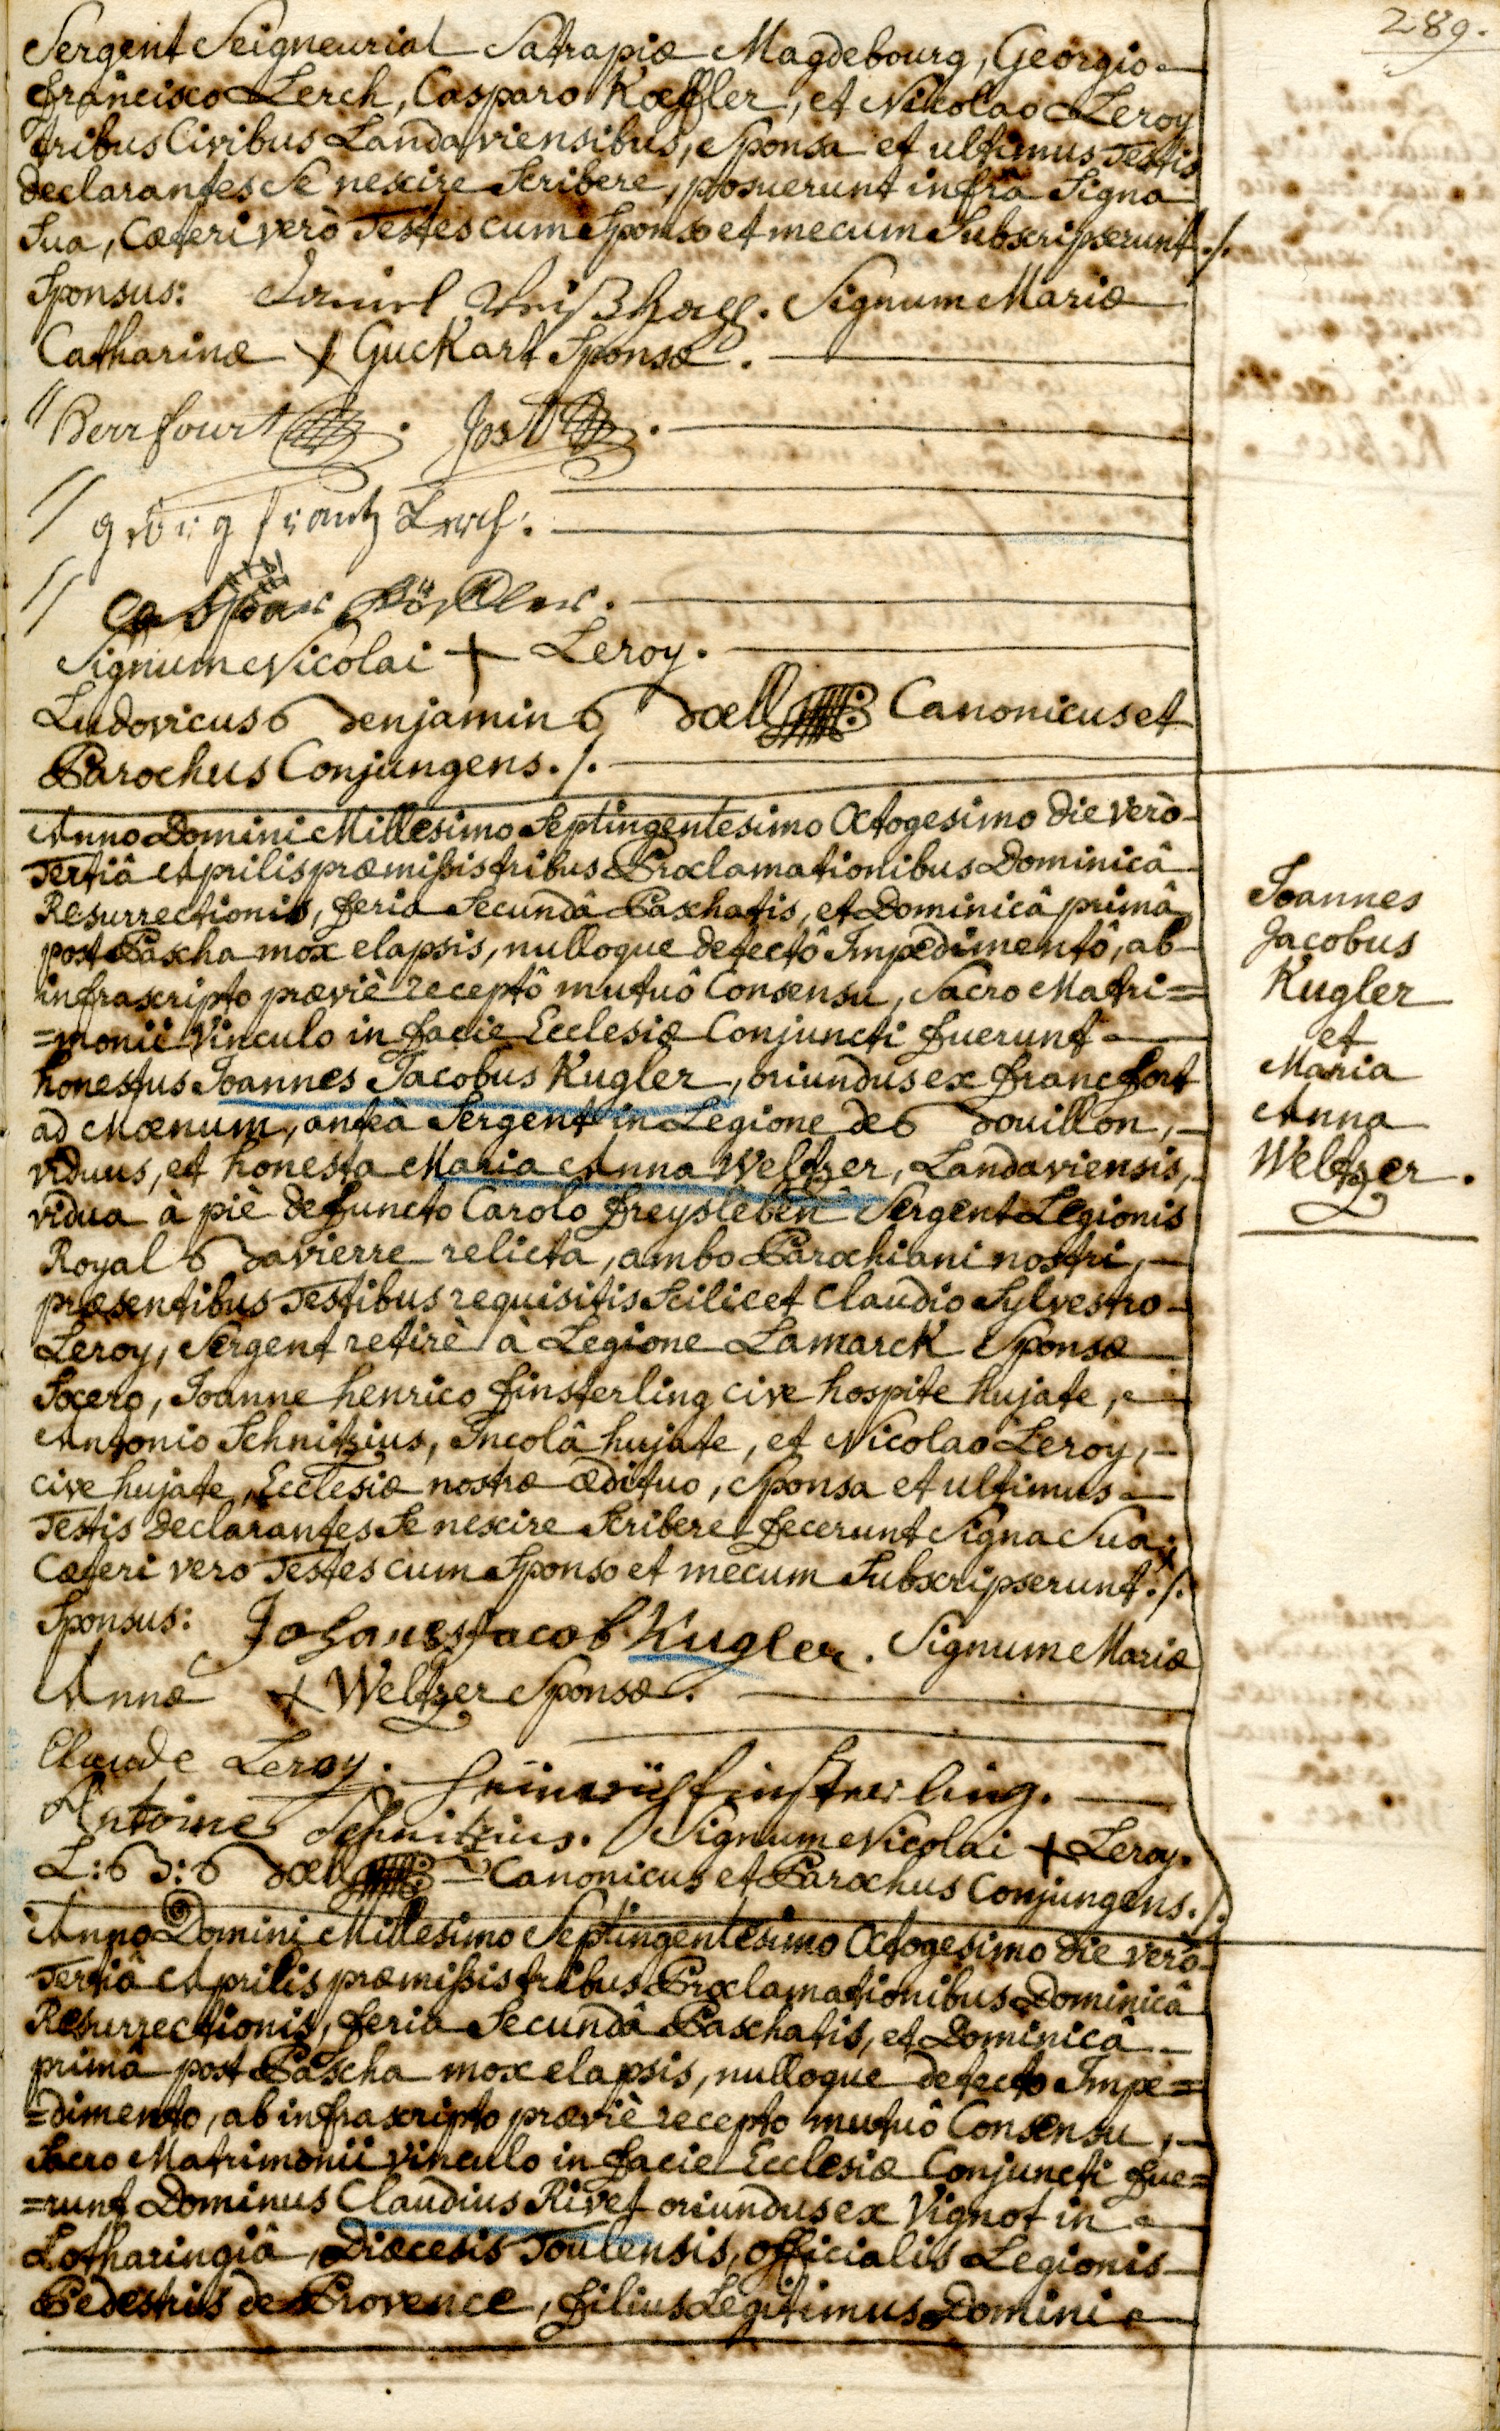 289.
Sergent Seigneurial Satrapiæ Magdebourg, Georgio
Francisco Lerch, Casparo Kœffler, et Nicolao Leroy
tribus Civibus Landaviensibus, Sponsa et ultimus Testis
declarantes Se nescire Scribere, posuerunt infrà Signa
Sua, Cæteri verò Testes cum Sponso et mecum Subscripserunt ./.
Sponsus: Daniel Signum Mariæ
Catharinæ + Guckart Sponsæ.
Berrfourt Jost
georg frantz Lerch.
Caspar Köffler.
Signum Nicolai + Leroy.
Ludovicus Benjamin Bœll Canonicus et
Parochus Conjungens ./.
Anno Domini Millesimo Septingentesimo Octogesimo die verò
Tertiâ Aprilis præmissis tribus Proclamationibus Dominicâ
Resurrectionis, feria Secundâ Paschatis, et Dominicâ primâ
post Pascha mox elapsis, nulloque detectô Impedimentô, ab
infrascripto præviè receptô mutuô Consensu, Sacro Matri=
=monii Vinculo in facie Ecclesiæ Conjuncti fuerunt
honestus Joannes Jacobus Kugler, oriundus ex francfort
ad Mœnum, anteà Sergent in Legione de Bouillon,
viduus, et honesta Maria Anna Weltzer, Landaviensis,
vidua à piè defuncto Carolo freysleben Sergent Legionis
Royal Bavierre relicta, ambo Parochiani nostri,
præsentibus Testibus requisitis Scilicet Claudio Sylvestro
Leroy, Sergent retirè à Legione Lamarck Sponsæ
Socero, Joanne henrico finsterling cive hospite hujate,
Antonio Schnitzius, Incolâ hujate, et Nicolao Leroy,
cive hujate, Ecclesiæ nostræ ædituo, Sponsa et ultimus
Testis declarantes Se nescire Scribere fecerunt Signa Sua;
Cæteri vero Testes cum Sponso et mecum Subscripserunt ./.
Sponsus: Johanes Jacob Kugler. Signum Mariæ
Annæ + Weltzer Sponsæ.
Claude Leroy. Heinrich finsterling.
Antoine Schnitzius. Signum Nicolai + Leroy.
L: B: Bœll Canonicus et Parochus Conjungens ./.
Joannes
Jacobus
Kugler
et
Maria
Anna
Weltzer.
Anno Domini Millesimo Septingentesimo Octogesimo die verò
Tertiâ Aprilis præmissis tribus Proclamationibus Dominicâ
Resurrectionis, feria Secundâ Paschatis, et Dominicâ
primâ post Pascha mox elapsis, nulloque detecto Impe=
=dimento, ab infrascripto præviè recepto mutuô Consensu,
Sacro Matrimonii vinculo in facie Ecclesiæ Conjuncti fue=
=runt Dominus Claudius Rivet oriundus ex Vignot in
Lotharingiâ, Diœcesis Toulensis, officialis Legionis
Pedestris de Provence, filius Legitimus Domini